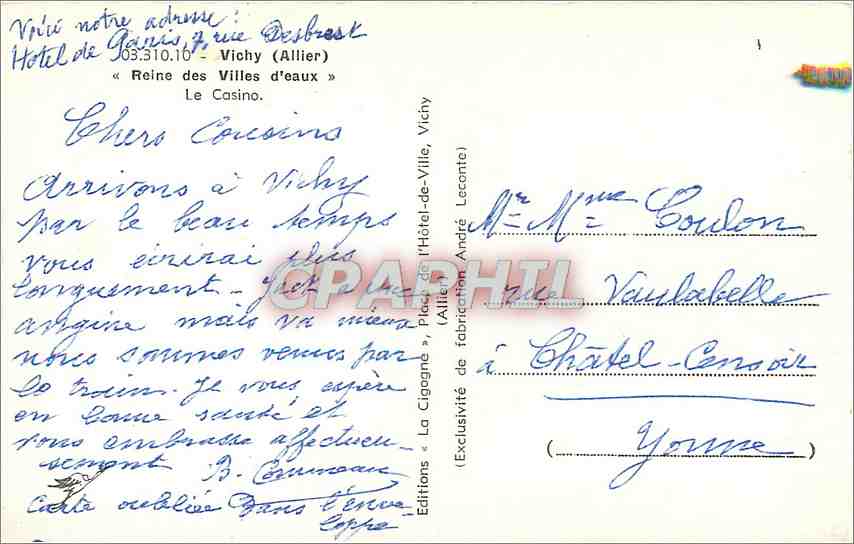 Voici notre adresse :
Hotel de Paris, 7, rue Desbrest
03.310.10 - Vichy (Allier)
« Reine des Villes d'eaux »
Le Casino.
Chers Cousins
Arrivons à Vichy
par le beau temps
vous écrirai plus
longuement - Jack a une
angine mais va mieux
nous sommes venus par
le train. Je vous espère
en bonne santé et
vous embrasse affectueu-
sement B.
Carte oubliée dans l'enve
loppe
Editions « La Cigogne », Place de l'Hôtel-de-Ville, Vichy
(Allier)
(Exclusivité de fabrication André Leconte)
Mr Mme Coulon
rue Vaulabelle
à Châtel-Censoir
(Yonne)
CPAPHIL